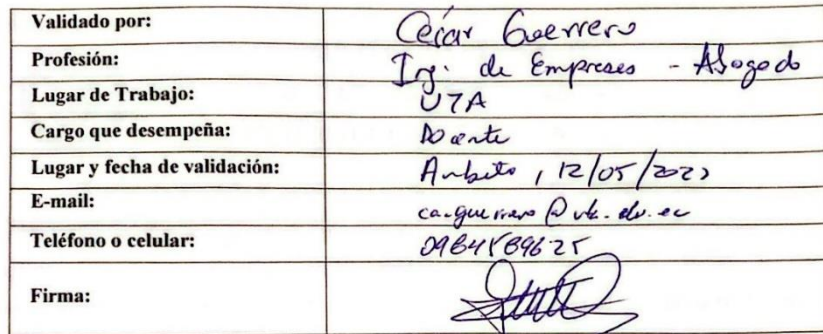 Validado por: César Guerrero
Profesión: Ing. de Empresas - Abogado
Lugar de Trabajo: UTA
Cargo que desempeña: Docente
Lugar y fecha de validación: Ambato, 12/05/
E-mail:
Teléfono o celular:
Firma: